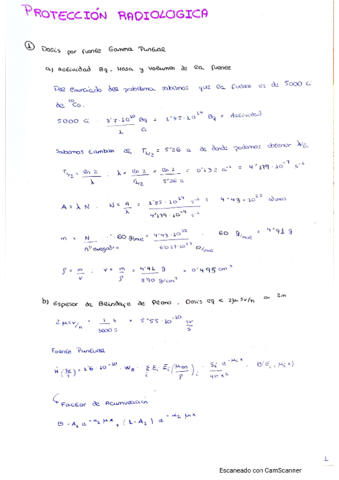 PROTECCIÓN RADIOLOGICA
① Dosis por fuente Gamma Puntual
a) Actividad Bq. Masa y Volumen de la fuente
Del enunciado del problema sabemos que la fuente es de 5000 Ci
de ⁶⁰Co.
5000 Ci · 3'7·10¹⁰ Bq / 1 Ci = 1'85·10¹⁴ Bq = Actividad
Sabemos también que T₁/₂ = 5'26 a de donde podemos obtener λ
T₁/₂ = ln 2 / λ ; λ = ln 2 / T₁/₂ = ln 2 / 5'26 a = 0'132 a⁻¹ = 4'179·10⁻⁹ s⁻¹
A = λ N ; N = A / λ = 1'85·10¹⁴ s⁻¹ / 4'179·10⁻⁹ s⁻¹ = 4'43·10²² átomos
m = N / nº avogadro · 60 g/mol = 4'43·10²² / 6'023·10²³ · 60 g/mol = 4'41 g
ρ = m / v ; v = m / ρ = 4'41 g / 8'90 g/cm³ = 0'495 cm³
b) Espesor de Blindaje de Plomo. Dosis eq < 2 μSv/h a 2m
2 μSv/h · 1 h / 3600 s = 5'55·10⁻¹⁰ Sv/s
Fuente Puntual
Factor de Acumulación
B = A₁ e^(-α₁ μx) + (1-A₁) e^(-α₂ μx)
1
Escaneado con CamScanner